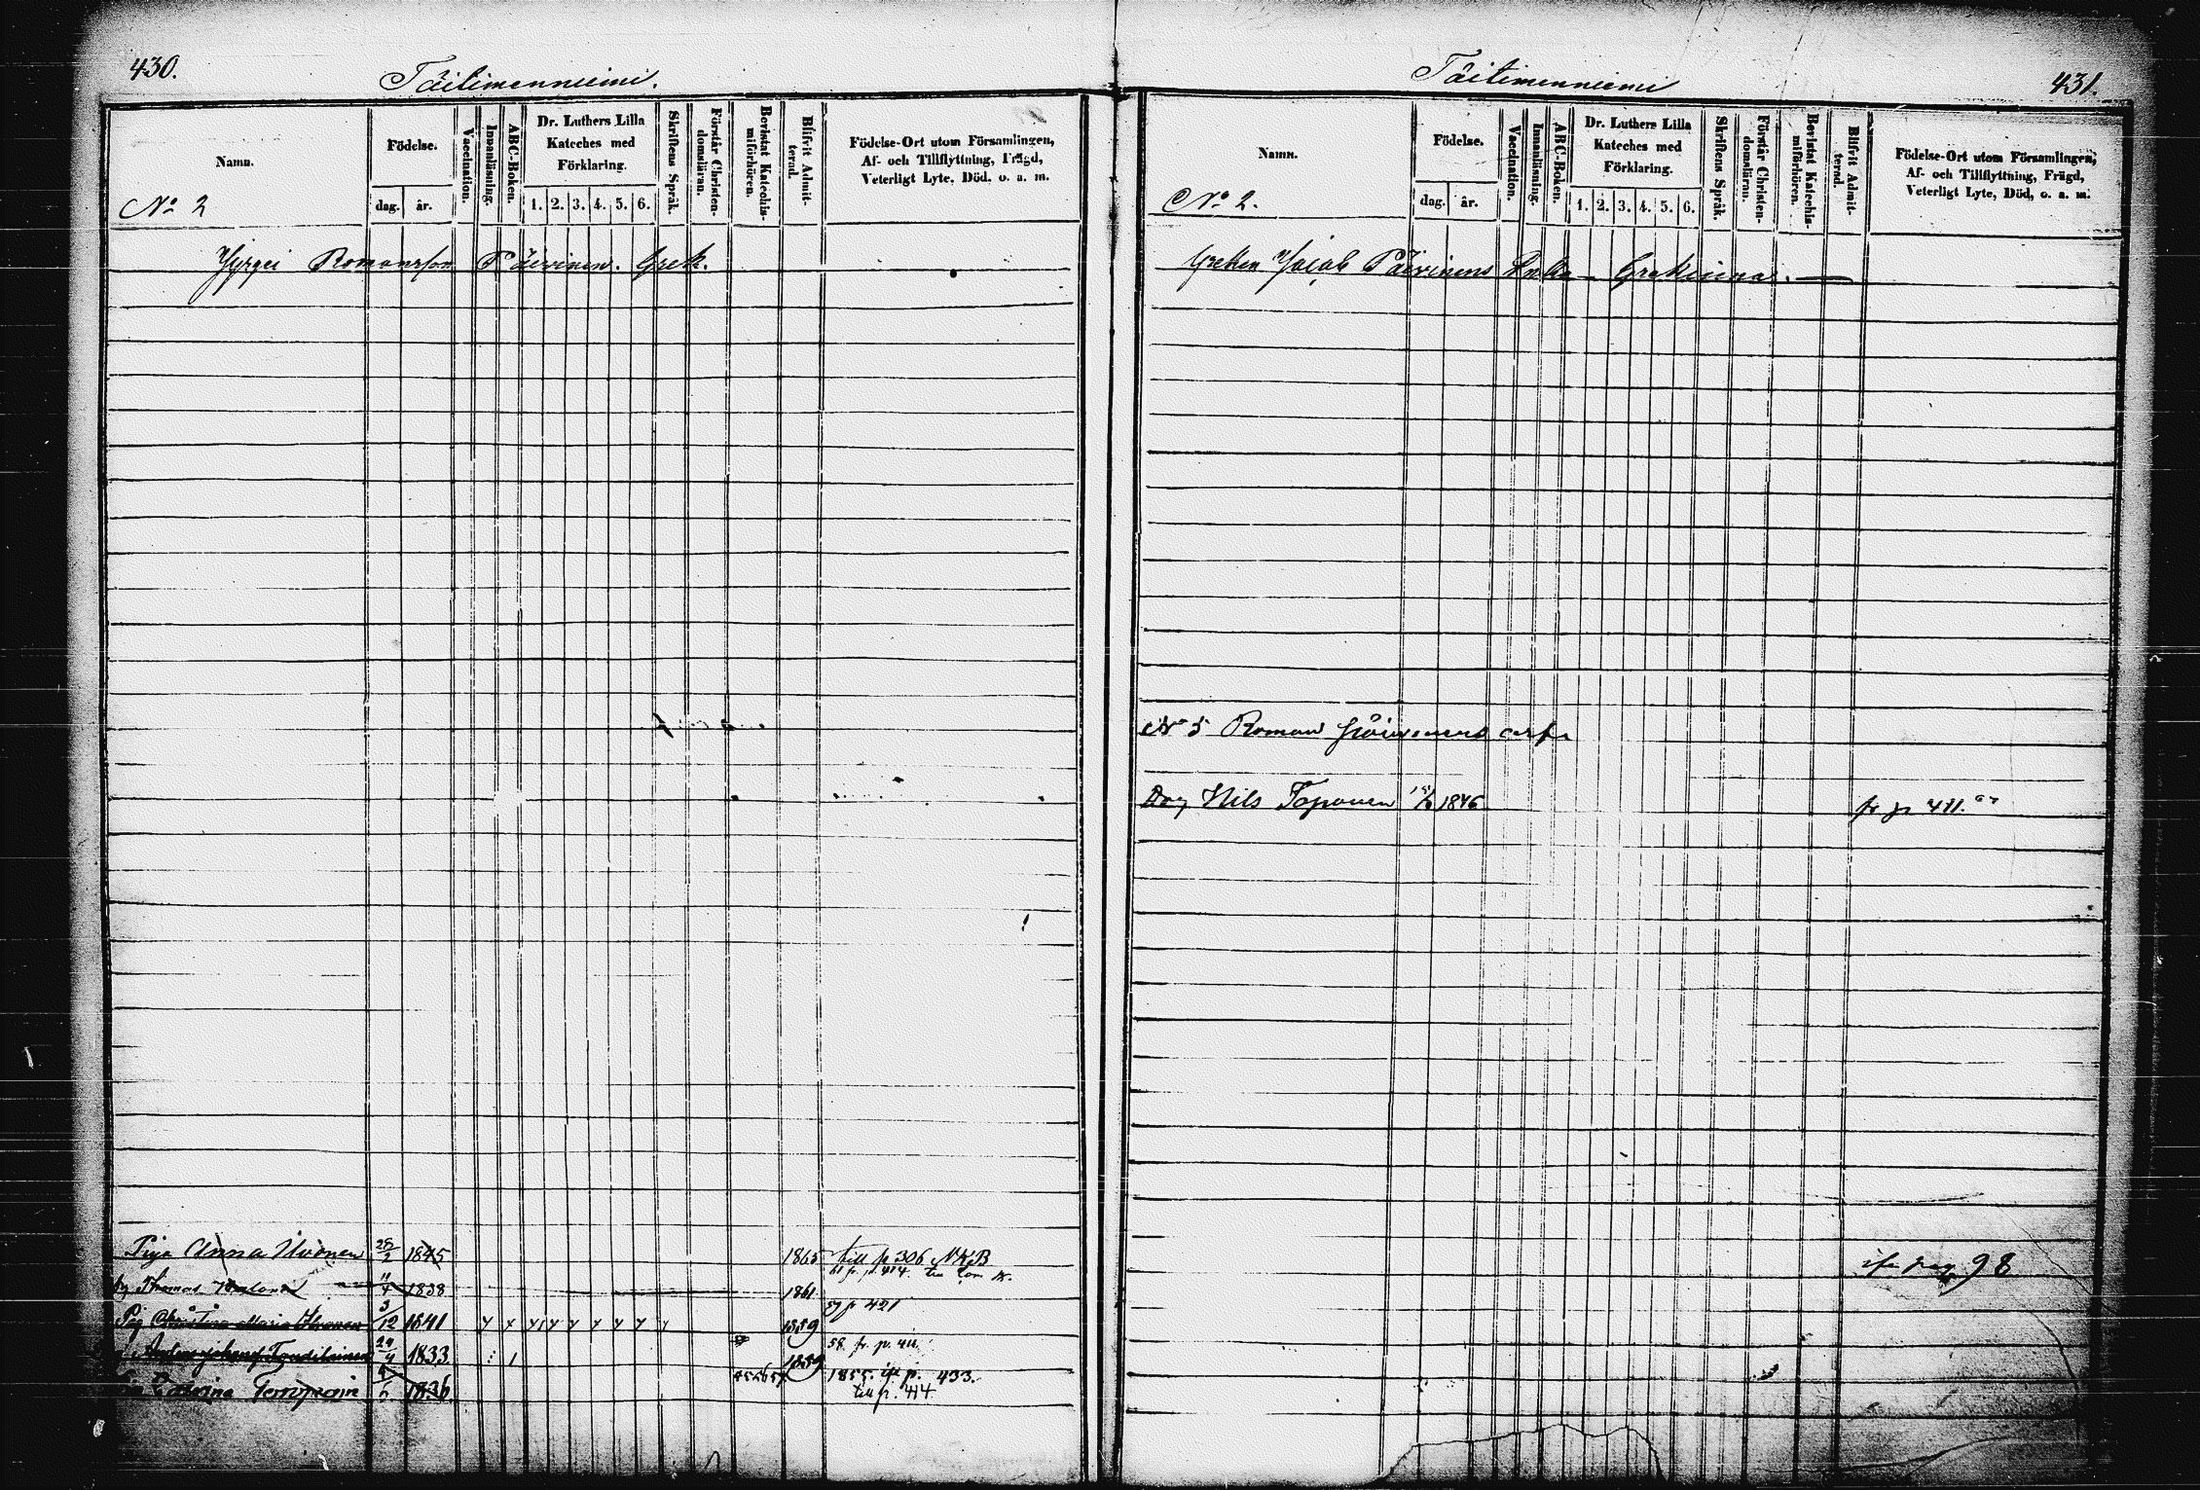 430.
Täitimenniemi.
Namn.
Födelse.
dag.
år.
Vaccination.
Innanläsning.
ABC-Boken.
Dr. Luthers Lilla
Kateches med
Förklaring.
1. 2. 3. 4. 5. 6.
Skriftens Språk.
Förstår Christen-
domsläran.
Bevistat Katechis-
miförhören.
Blifvit Admit-
terad.
Födelse-Ort utom Församlingen,
Af- och Tillflyttning, Frägd,
Veterligt Lyte, Död, o. s. m.
No 2
Romansson Päivinen. Grek.
Piga Anna 28/2 1845 1865 till p 306 NKB
Thomas 11/4 1838 1861
57 p 421
Pig Maria 3/12 1841 1859
58. fr. p. 
24/4 1833 1859
1855. p. 433.
1836 till p. 414
Täitimenniemi
431.
Namn.
Födelse.
dag. år.
Vaccination.
Innanläsning.
ABC-Boken.
Dr. Luthers Lilla
Kateches med
Förklaring.
1. 2. 3. 4. 5. 6.
Skriftens Språk.
Förstår Christen-
domsläran.
Bevistat Katechis-
miförhören.
Blifvit Admit-
terad.
Födelse-Ort utom Församlingen,
Af- och Tillflyttning, Frägd,
Veterligt Lyte, Död, o. s. m.
No 2.
Greken Päivinens Enka Grekinna.
No 5 Roman
Nils Toponen 1846 fr p 411.
pag 98